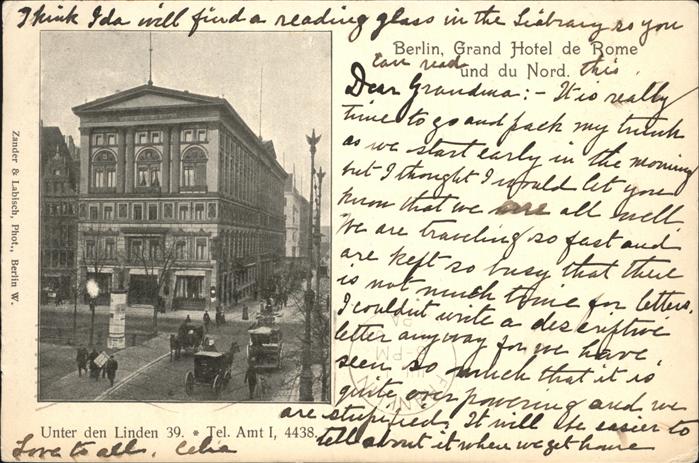 I think Ida will find a reading glass in the Library so you
can read this.
Berlin, Grand Hotel de Rome
und du Nord.
Dear Grandma:- It is really
time to go and pack my trunk
as we start early in the morning
but I thought I would let you
know that we are all well
We are traveling so fast and
are kept so busy that there
is not much time for letters.
I couldn't write a descriptive
letter anyway for we have
seen so much that it is
quite overpowering and we
are stupified. It will be easier to
tell about it when we get home
Love to all. Celia
Unter den Linden 39. * Tel. Amt I, 4438.
Zander & Labisch, Phot., Berlin W.